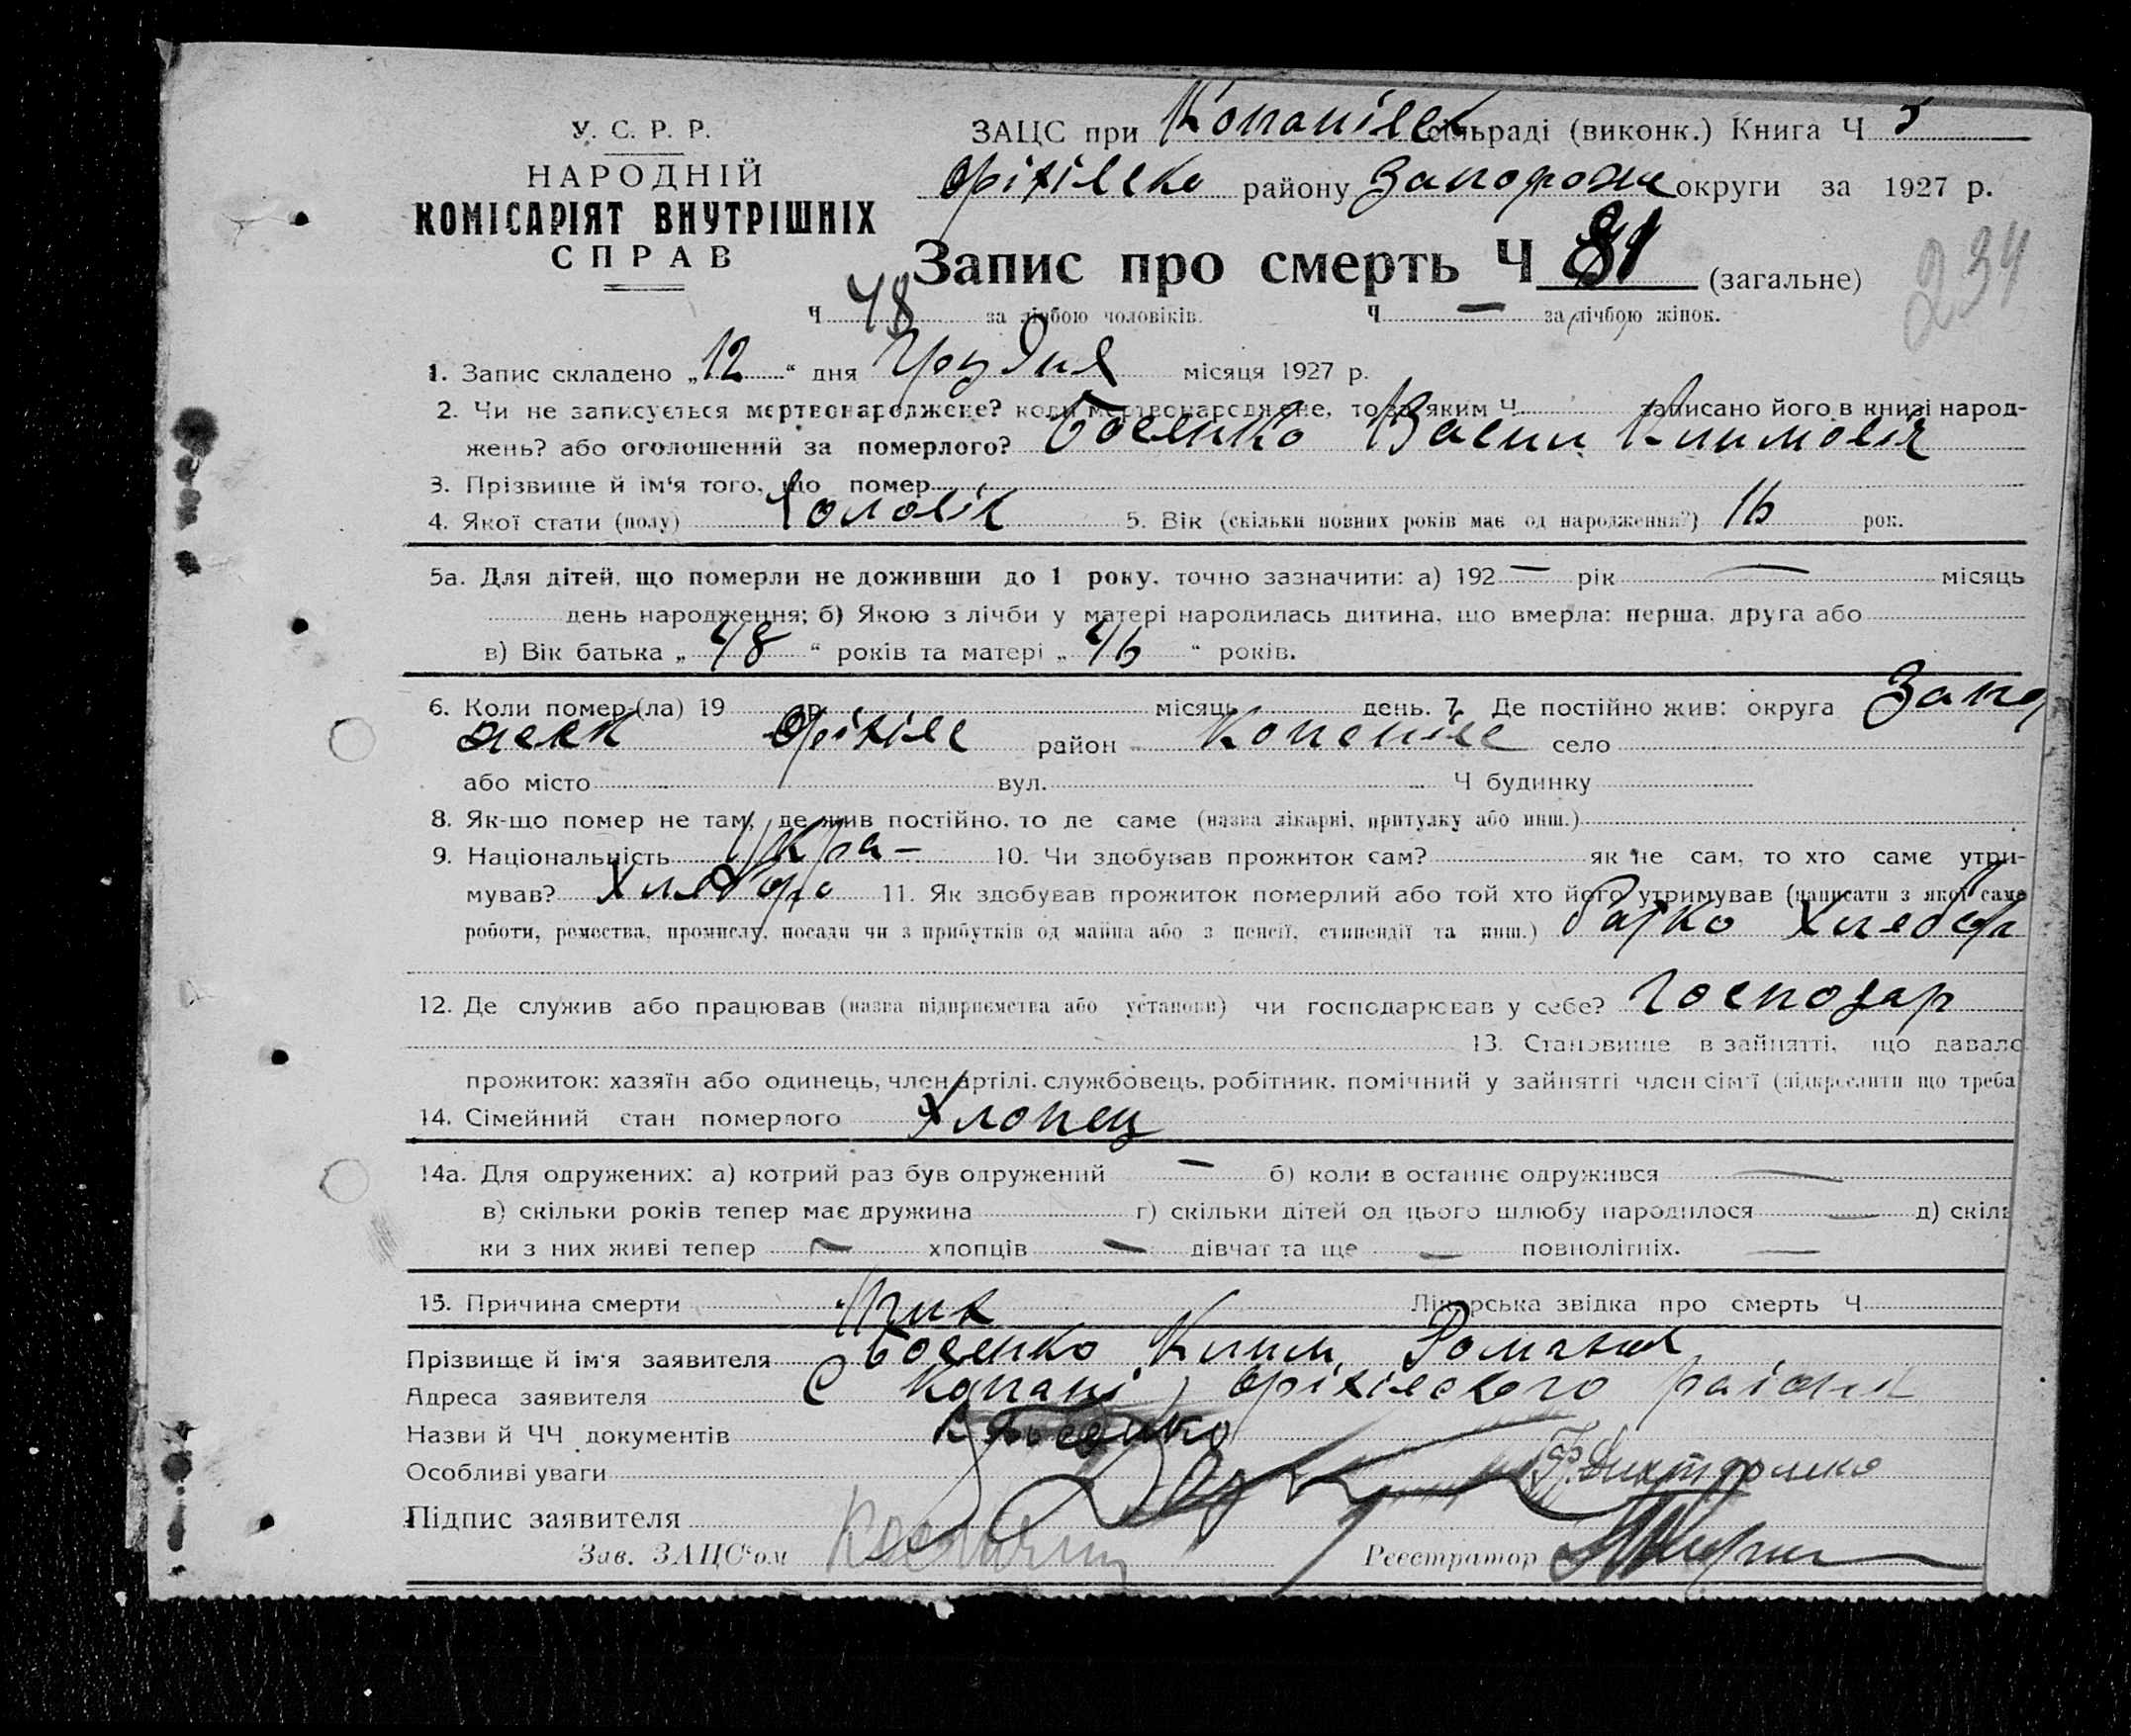 У. С. Р. Р.
НАРОДНІЙ
КОМІСАРІЯТ ВНУТРІШНІХ
СПРАВ
ЗАЦС при Копанівск сільраді (виконк.) Книга Ч
Оріхівско району Запорожс округи за 1927 р.
Запис про смерть Ч 81 (загальне)
234
Ч 48 за лічбою чоловіків. Ч — за лічбою жінок.
1. Запис складено „12“ дня Грудня місяця 1927 р.
2. Чи не записується мертвонароджене? коли мертвонароджене, то за яким Ч записано його в книзі народ-
жень? або оголошений за померлого? Босенко Васил Климовіч
3. Прізвище й ім‘я того, що помер
4. Якої стати (полу) Чоловік 5. Вік (скільки повних років має од народження?) 16 рок.
5а. Для дітей, що померли не доживши до 1 року, точно зазначити: а) 192 — рік — місяць
день народження; б) Якою з лічби у матері народилась дитина, що вмерла: перша, друга або
в) Вік батька „48“ років та матері „46“ років.
6. Коли помер (ла) 19 р. місяць день. 7. Де постійно жив: округа Запо
Оріхівс район Копанівс село
або місто вул. Ч будинку
8. Як-що помер не там, де жив постійно, то де саме (назва лікарні, притулку або инш.)
9. Національність Укра– 10. Чи здобував прожиток сам? як не сам, то хто саме утри-
мував? Хлебороб 11. Як здобував прожиток померлий або той хто його утримував (написати з якої саме
роботи, ремества, промислу, посади чи з прибутків од майна або з пенсії, стипендії та инш.) Хлебор
12. Де служив або працював (назва підприємства або установи) чи господарював у себе? Господар
13. Становище в зайнятті, що давало
прожиток: хазяїн або одинець, член артілі, службовець, робітник, помічний у зайнятті член сім'ї (підкреслити що треба
14. Сімейний стан померлого Хлопец
14а. Для одружених: а) котрий раз був одружений — б) коли в останнє одружився —
в) скільки років тепер має дружина г) скільки дітей од цього шлюбу народилося — д) скіль
ки з них живі тепер — хлопців — дівчат та ще — повнолітніх. —
15. Причина смерти Лікарська звідка про смерть Ч
Прізвище й ім'я заявителя Босенко Клим Роман
Адреса заявителя С Копані, Оріхівского району
Назви й ЧЧ документів
Особливі уваги
Підпис заявителя
Зав. ЗАЦС‘ом Реєстратор